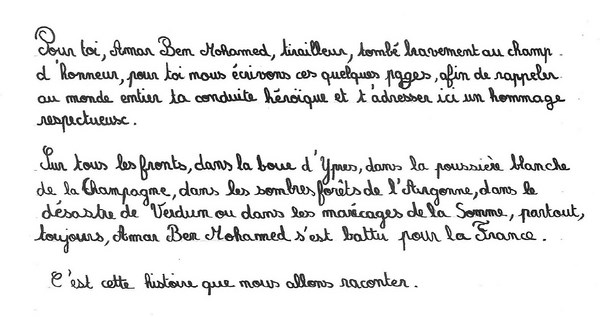 Pour toi, Amar Ben Mohamed, tirailleur, tombé bravement au champ
d'honneur, pour toi nous écrivons ces quelques pages, afin de rappeler
au monde entier ta conduite héroïque et t'adresser ici un hommage
respectueusc.
Sur tous les fronts, dans la boue d'Ypres, dans la poussière blanche
de la Champagne, dans les sombres forêts de l'Argonne, dans le
désastre de Verdun ou dans les marécages de la Somme, partout,
toujours, Amar Ben Mohamed s'est battu pour la France.
C'est cette histoire que nous allons raconter.